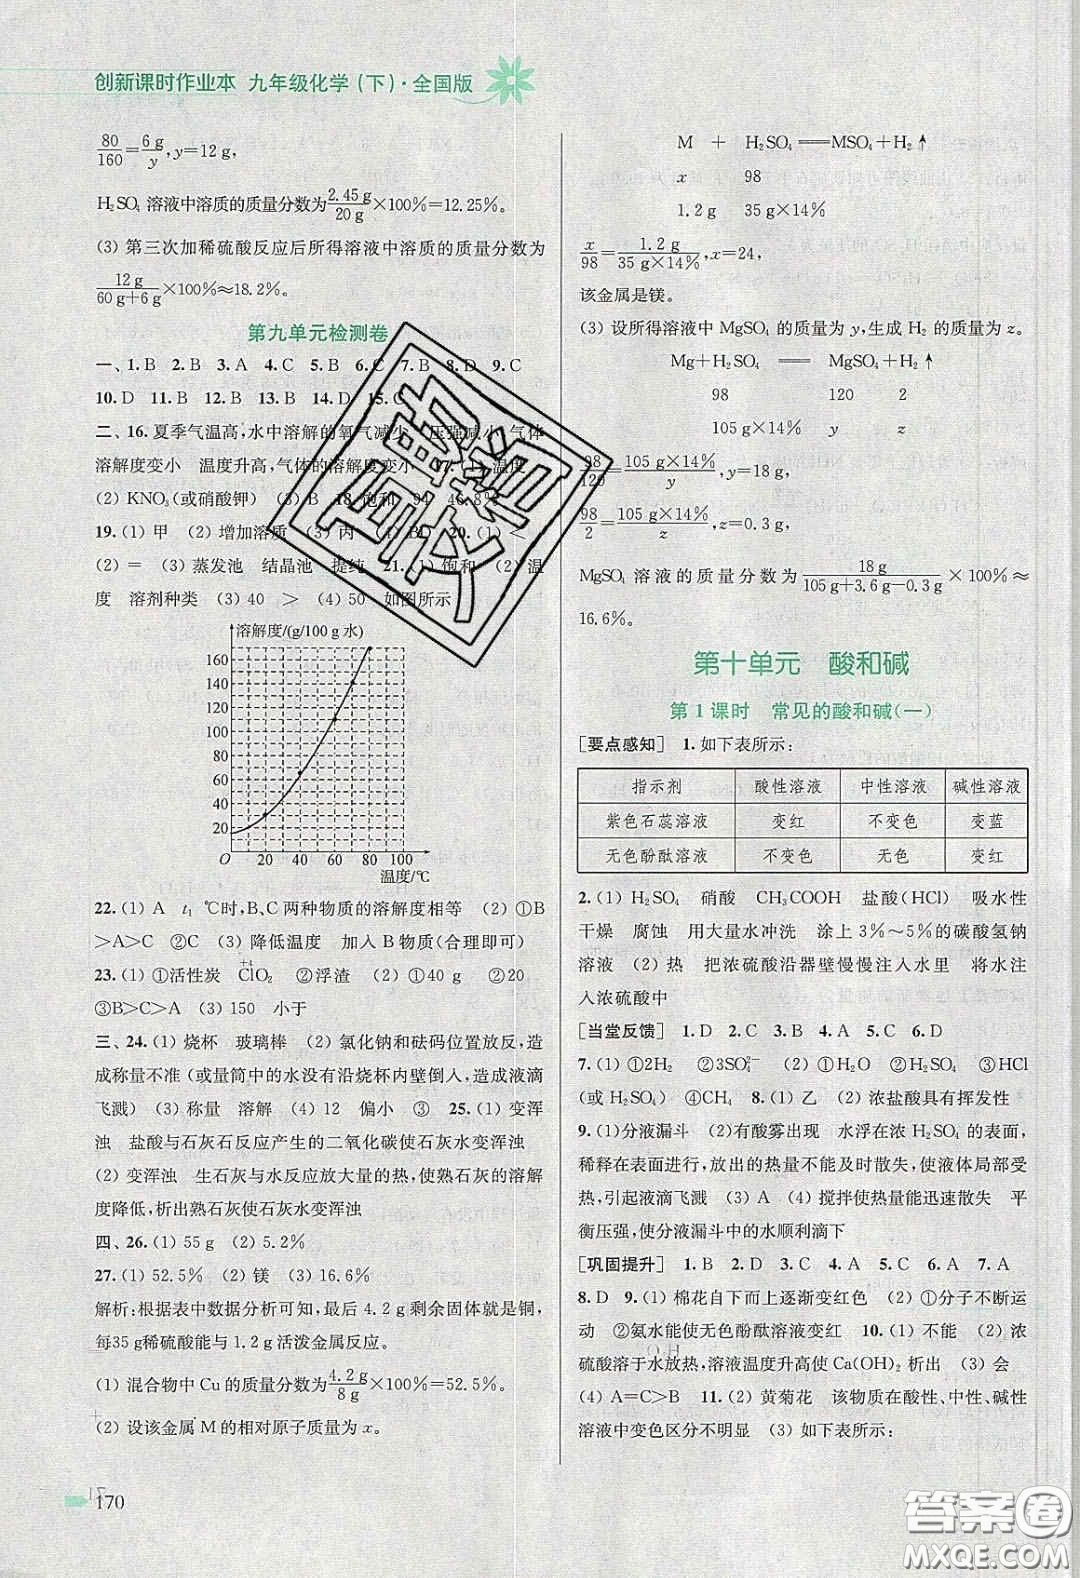 创新课时作业本 九年级化学(下)·全国版
80/160=6 g/y,y=12 g,
H₂SO₄ 溶液中溶质的质量分数为2.45 g/20 g×100%=12.25%。
(3) 第三次加稀硫酸反应后所得溶液中溶质的质量分数为
12 g/60 g+6 g×100%≈18.2%。
第九单元检测卷
一、1. B 2. B 3. A 4. C 5. B 6. C 7. B 8. D 9. C
10. D 11. B 12. B 13. B 14. D 15. C
二、16. 夏季气温高,水中溶解的氧气减少 压强减小,气体
溶解度变小 温度升高,气体的溶解度变小 17. (1) 温度
(2) KNO₃(或硝酸钾) (3) B 18. 饱和 94 46.8%
19. (1) 甲 (2) 增加溶质 (3) 丙 (4) BD 20. (1) <
(2) = (3) 蒸发池 结晶池 提纯 21. (1) 饱和 (2) 温
度 溶剂种类 (3) 40 > (4) 50 如图所示
溶解度/(g/100 g 水)
160
140
120
100
80
60
40
20
O 20 40 60 80 100
温度/℃
22. (1) A t₁ ℃时,B、C 两种物质的溶解度相等 (2) ①B
>A>C ②C (3) 降低温度 加入 B 物质(合理即可)
23. (1) ①活性炭 +4 ClO₂ ②浮渣 (2) ①40 g ②20
③B>C>A (3) 150 小于
三、24. (1) 烧杯 玻璃棒 (2) 氯化钠和砝码位置放反,造
成称量不准(或量筒中的水没有沿烧杯内壁倾倒,造成液滴
飞溅) (3) 称量 溶解 (4) 12 偏小 ③ 25. (1) 变浑
浊 盐酸与石灰石反应产生的二氧化碳使石灰水变浑浊
(2) 变浑浊 生石灰与水反应放大量的热,使熟石灰的溶解
度降低,析出熟石灰使石灰水变浑浊
四、26. (1) 55 g (2) 5.2%
27. (1) 52.5% (2) 镁 (3) 16.6%
解析:根据表中数据分析可知,最后 4.2 g 剩余固体就是铜,
每35 g稀硫酸能与 1.2 g 活泼金属反应。
(1) 混合物中 Cu 的质量分数为4.2 g/8 g×100%=52.5%。
(2) 设该金属 M 的相对原子质量为 x。
170
M + H₂SO₄══MSO₄+H₂↑
x 98
1.2 g 35 g×14%
x/98=1.2 g/35 g×14%,x=24,
该金属是镁。
(3) 设所得溶液中 MgSO₄ 的质量为 y,生成 H₂ 的质量为 z。
Mg+H₂SO₄ ══ MgSO₄+H₂↑
98 120 2
105 g×14% y z
98/120=105 g×14%/y,y=18 g,
98/2=105 g×14%/z,z=0.3 g,
MgSO₄ 溶液的质量分数为18 g/105 g+3.6 g-0.3 g×100%≈
16.6%。
第十单元 酸和碱
第 1 课时 常见的酸和碱(一)
[要点感知] 1. 如下表所示:
指示剂 酸性溶液 中性溶液 碱性溶液
紫色石蕊溶液 变红 不变色 变蓝
无色酚酞溶液 不变色 无色 变红
2. (1) H₂SO₄ 硝酸 CH₃COOH 盐酸(HCl) 吸水性
干燥 腐蚀 用大量水冲洗 涂上 3%~5%的碳酸氢钠
溶液 (2) 热 把浓硫酸沿器壁慢慢注入水里 将水注
入浓硫酸中
[当堂反馈] 1. D 2. C 3. B 4. A 5. C 6. D
7. (1) ①2H₂ ②3SO₄²⁻ (2) ①H₂O ②H₂SO₄ ③HCl
(或 H₂SO₄) ④CH₄ 8. (1) 乙 (2) 浓盐酸具有挥发性
9. (1)分液漏斗 (2)有酸雾出现 水浮在浓 H₂SO₄ 的表面,
稀释在表面进行,放出的热量不能及时散失,使液体局部受
热,引起液滴飞溅 (3) A (4) 搅拌使热量能迅速散失 平
衡压强,使分液漏斗中的水顺利滴下
[巩固提升] 1. B 2. D 3. A 4. A 5. C 6. A 7. A
8. D 9. (1) 棉花自下而上逐渐变红色 (2) ①分子不断运
动 ②氨水能使无色酚酞溶液变红 10. (1) 不能 (2) 浓
硫酸溶于水放热,溶液温度升高使 Ca(OH)₂ 析出 (3) 会
(4) A=C>B 11. (2) 黄菊花 该物质在酸性、中性、碱性
溶液中变色区分不明显 (3) 如下表所示:
答案圈
MXQE.COM